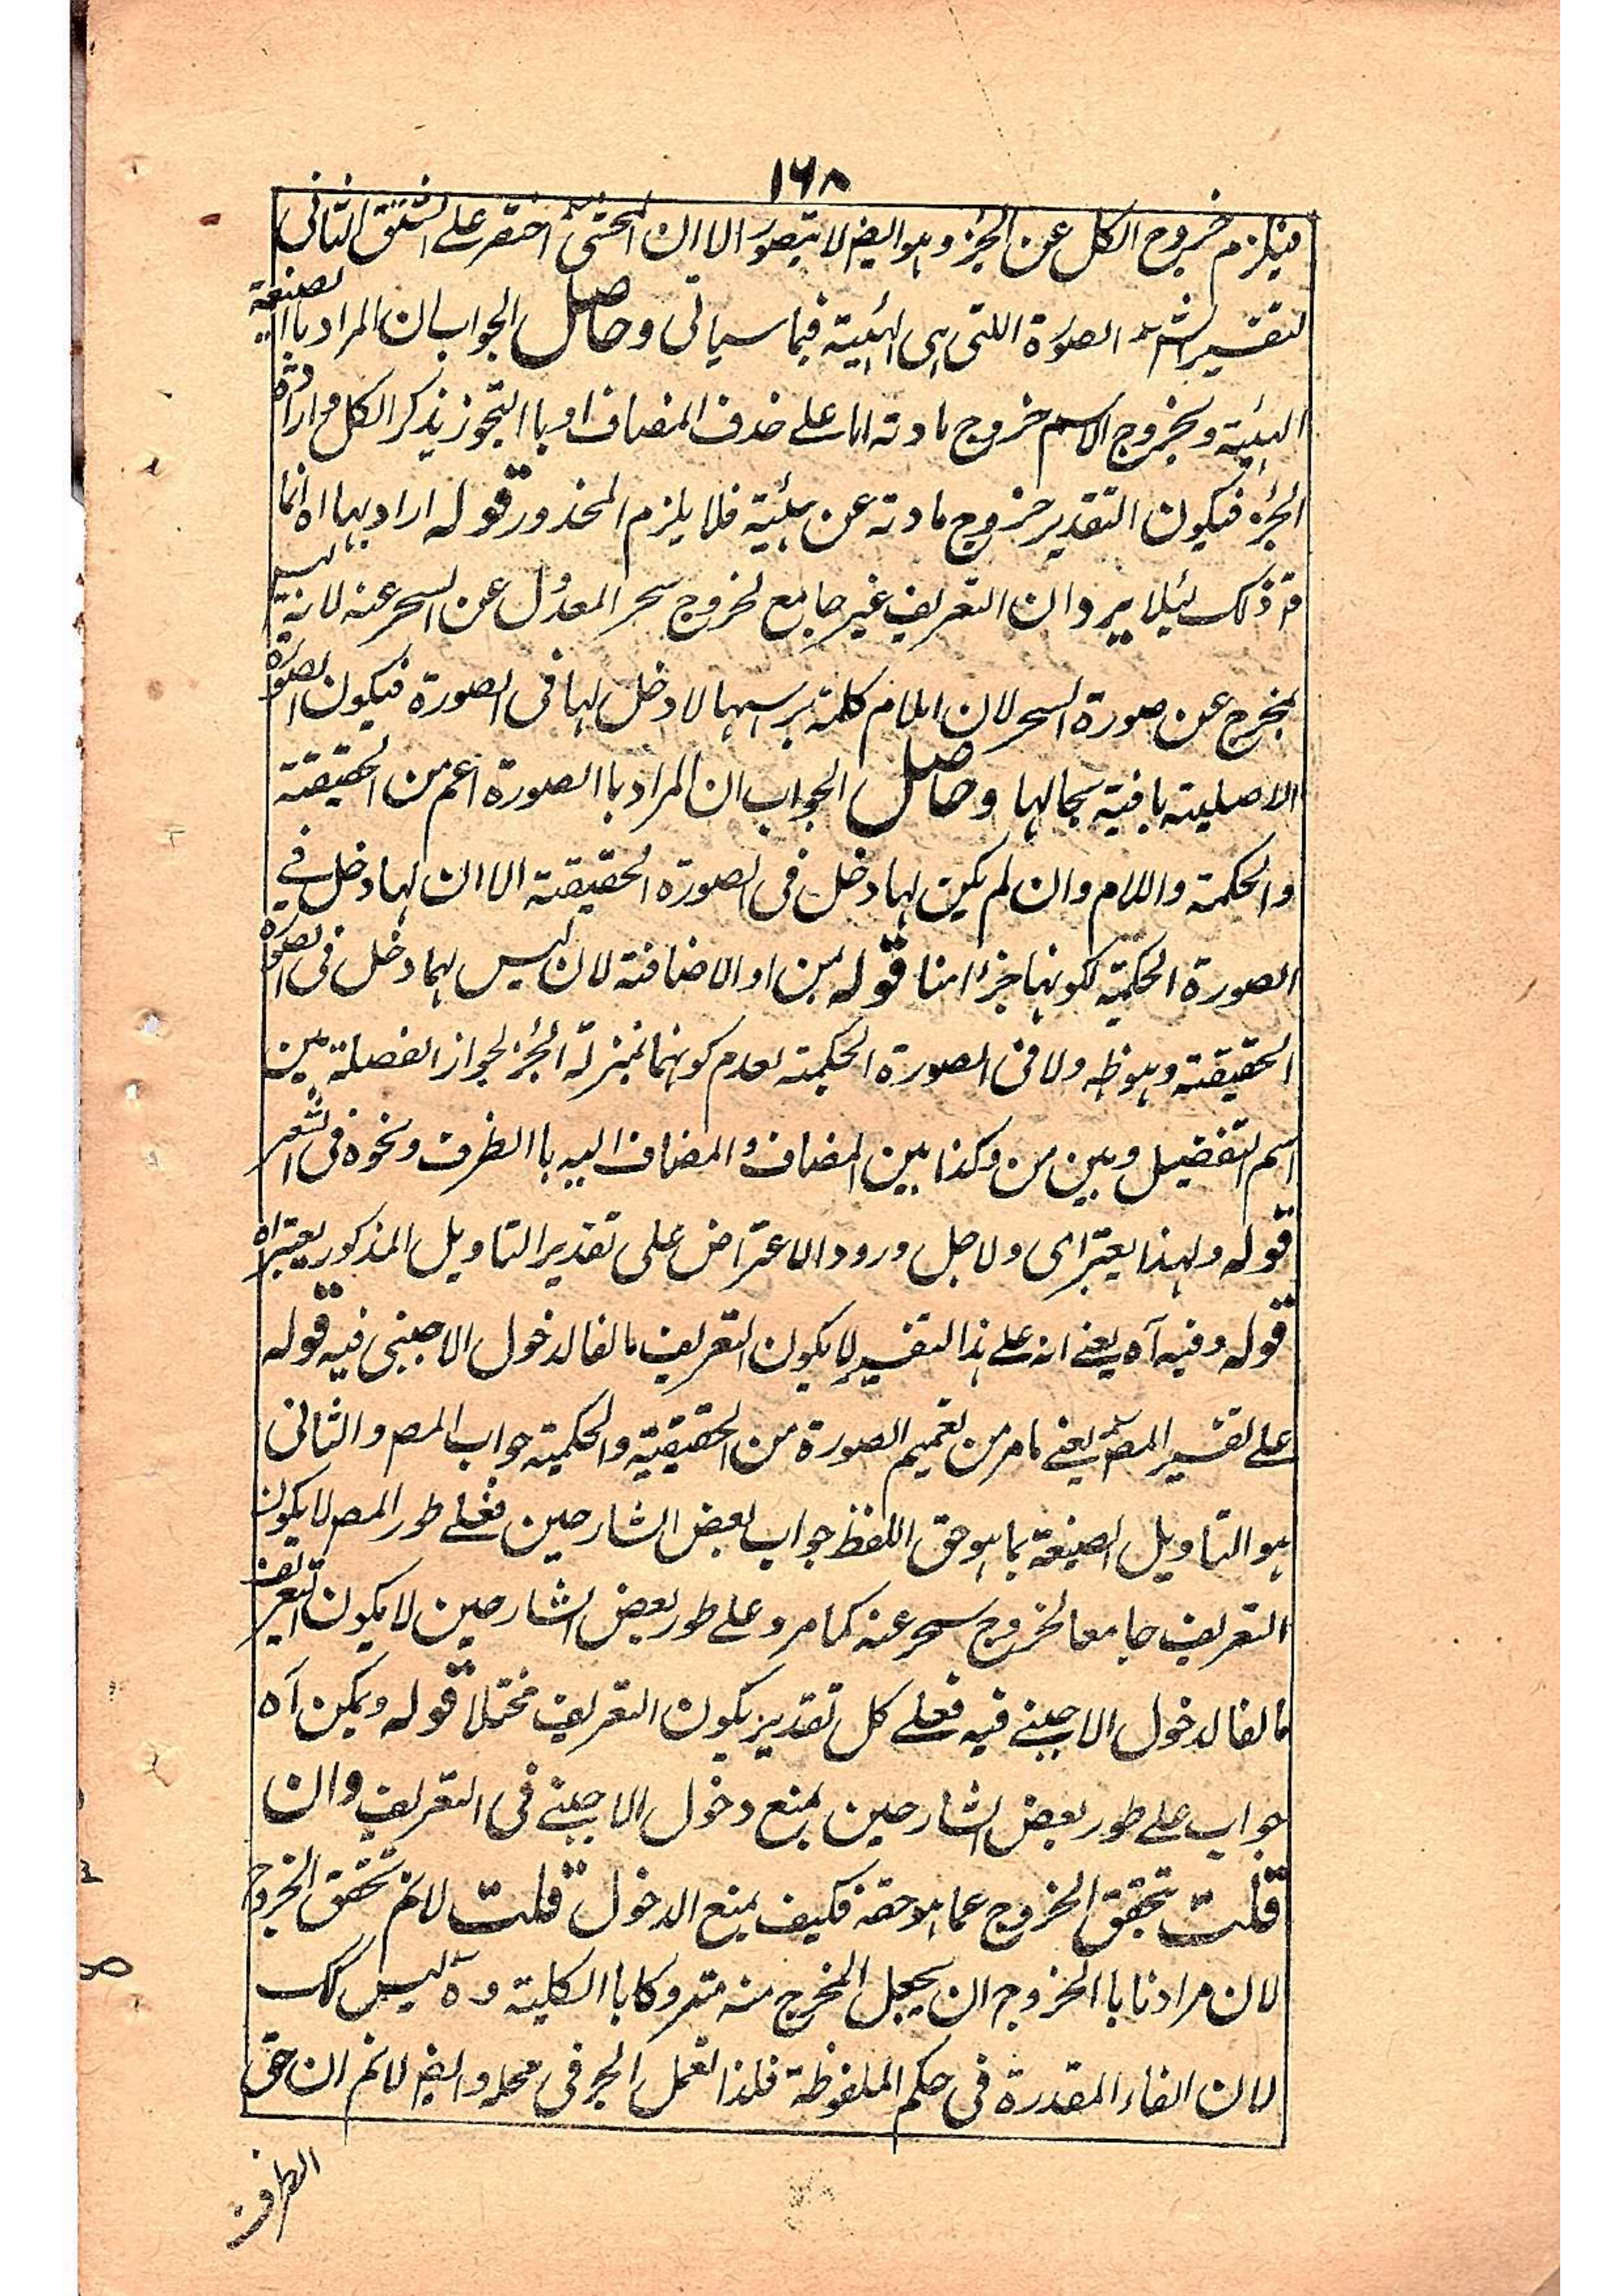 ١٦٨
فيلزم خروج الكل عن الجزء وهو ايضا لا يتصور الا ان المحشىؒ اختصر على الشق الثانى
لتفسير الشرؒ الصورة اللتى هى الهئية فيما سياتى وحاصل الجواب ان المراد با الصيغة
الهئية وبخروج الاسم خروج مادته اما على حذف المضاف او با التجوز بذكر الكل وارادة
الجزء فيكون التقدير خروج مادته عن هئية فلا يلزم المحذور قوله اراد بهما اه انما
ذلك ليئلا يرد ان التعريف غير جامع لخروج سحر المعدول عن السحر عنه لانه ليس
بمخرج عن صورة السحر لان اللام كلمة براسها لا دخل لها فى الصورة فيكون الصورة
الاصلية باقية بحالها وحاصل الجواب ان المراد با الصورة اعم من الحقيقة
والحكمة واللام وان لم يكن لها دخل فى الصورة الحقيقة الا ان لها دخل فے
الصورة الحكمية لكونها جزءا هنا قوله من او الاضافة لان ليس لهما دخل فى الصورة
الحقيقة وهو ظه ولا فى الصورة الحكمية لعدم كونهما بمنزلة الجزء لجواز الفصلة بين
اسم التفضيل وبين من وكذا بين المضاف والمضاف اليه با الظرف ونحوه فى الشعر
قوله ولهذا يعتبر اى ولاجل ورود الاعتراض على تقدير التاويل المذكور يعتبر اه
قوله وفيه آه يعنے انه علے هذا التفسير لا يكون التعريف مانعا لدخول الاجنبى فيه قوله
علے تفسير المصؒ يعنے ما مر من تعميم الصورة من الحقيقية والحكمية جواب المصر والثانى
هو التاويل الصيغة بما هو حق اللفظ جواب بعض الشارحين فعلے طور المصر لا يكون
التعريف جامعا لخروج سحر عنه كما مر وعلے طور بعض الشارحين لا يكون التعريف
مانعا لدخول الاجنبے فيه فعلے كل تقدير يكون التعريف مختلا قوله ويمكن آه
جواب علے طور بعض الشارحين بمنع دخول الاجنبے فى التعريف وان
قلت تحقق الخروج عما هو حقه فكيف يمنع الدخول قلت لانم تحقق الخروج
لان مرادنا با الخروج ان يجعل المخرج منه متروكا با الكلية وہ ليس كك
لان الفاء المقدرة فى حكم الملفوظة فلذا تعمل الجر فى محله وايضا لانم ان حق
الظرف